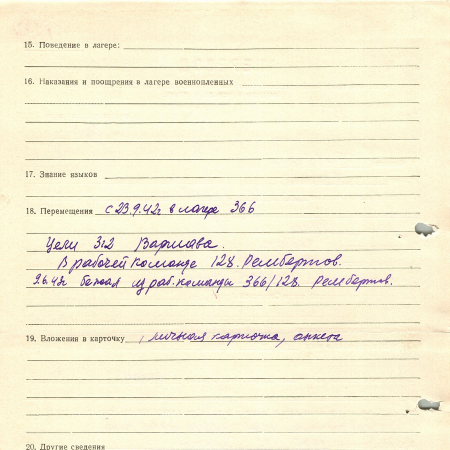 15. Поведение в лагере:
16. Наказания и поощрения в лагере военнопленных
17. Знание языков
18. Перемещения с 23.9.42г в лагере 366
312 Варшава.
В рабочей команде 128. Рембертов.
бежал из раб. команды 366/128. Рембертов.
19. Вложения в карточку личная карточка, анкета
20. Другие сведения